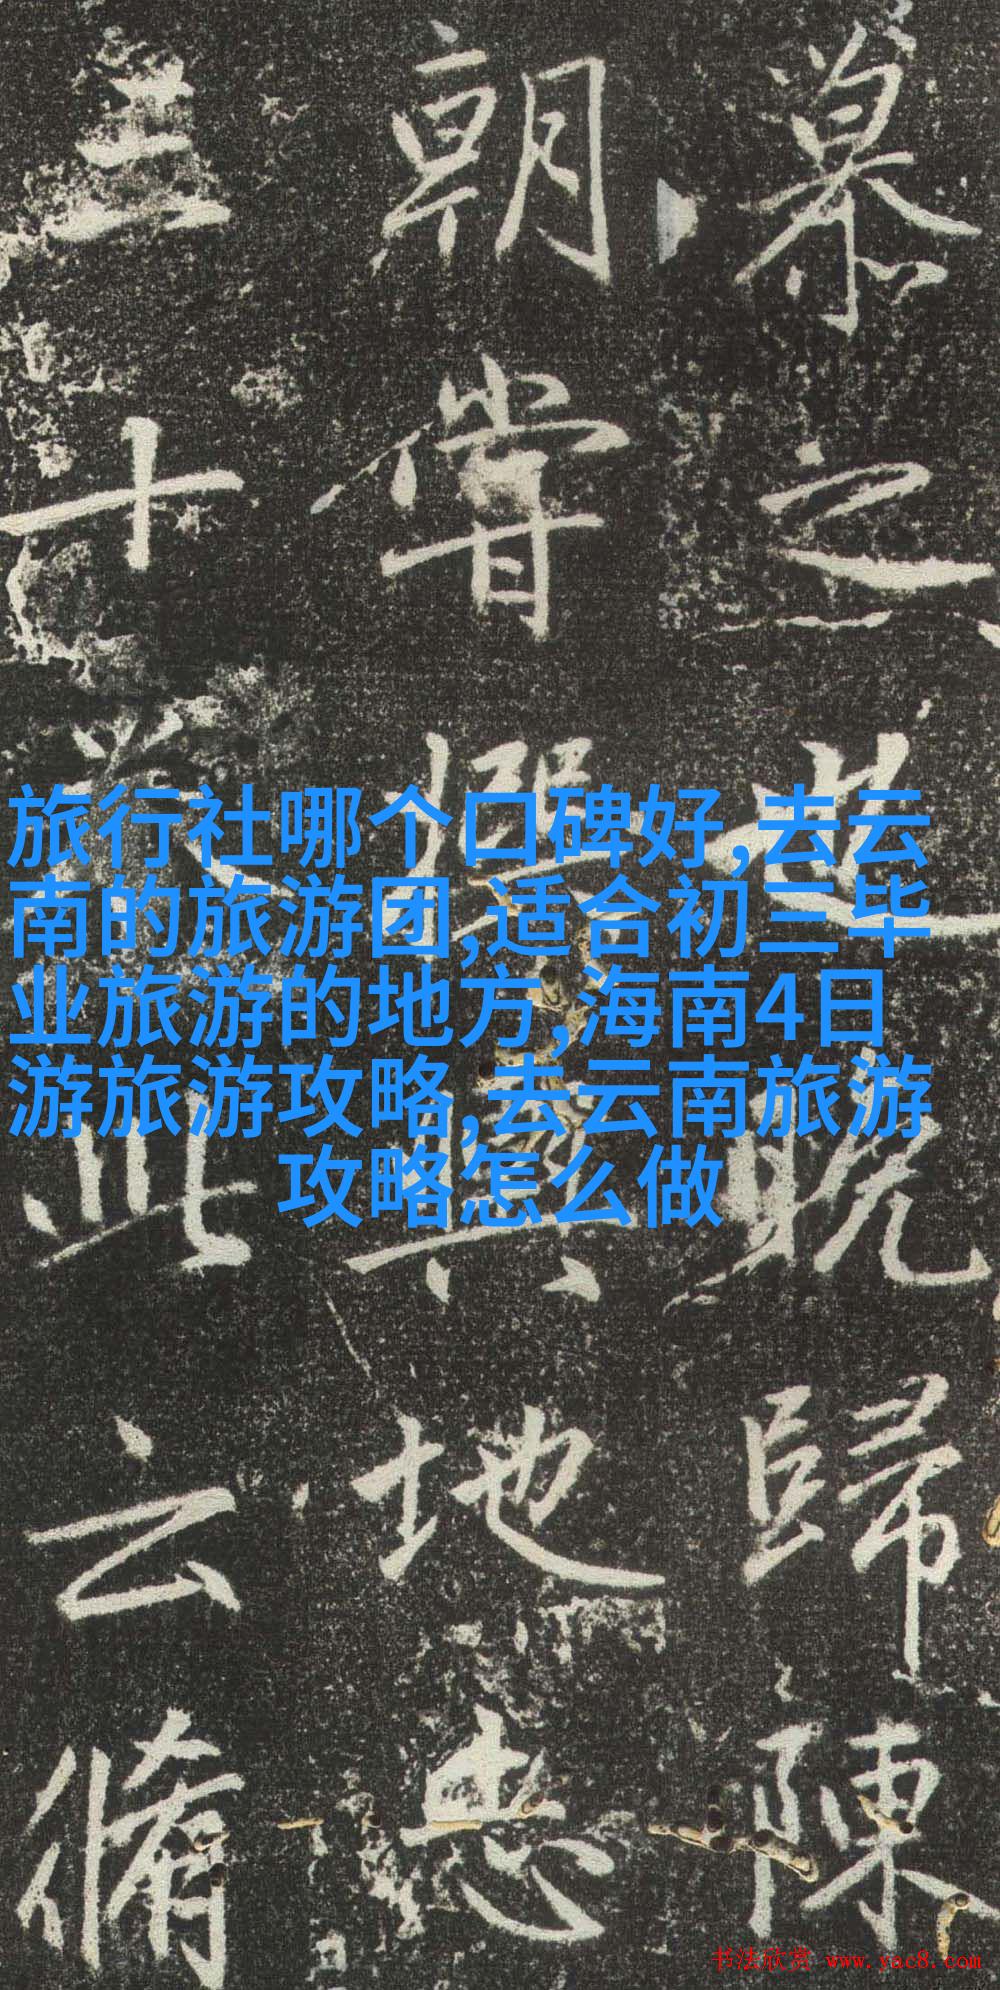 之也歸陳
朝嘗地忠
十此云脩
旅行社哪个口碑好,去云
南的旅游团,适合初三毕
业旅游的地方,海南4日
游旅游攻略,去云南旅游
攻略怎么做
书法欣赏 www.yac8.com